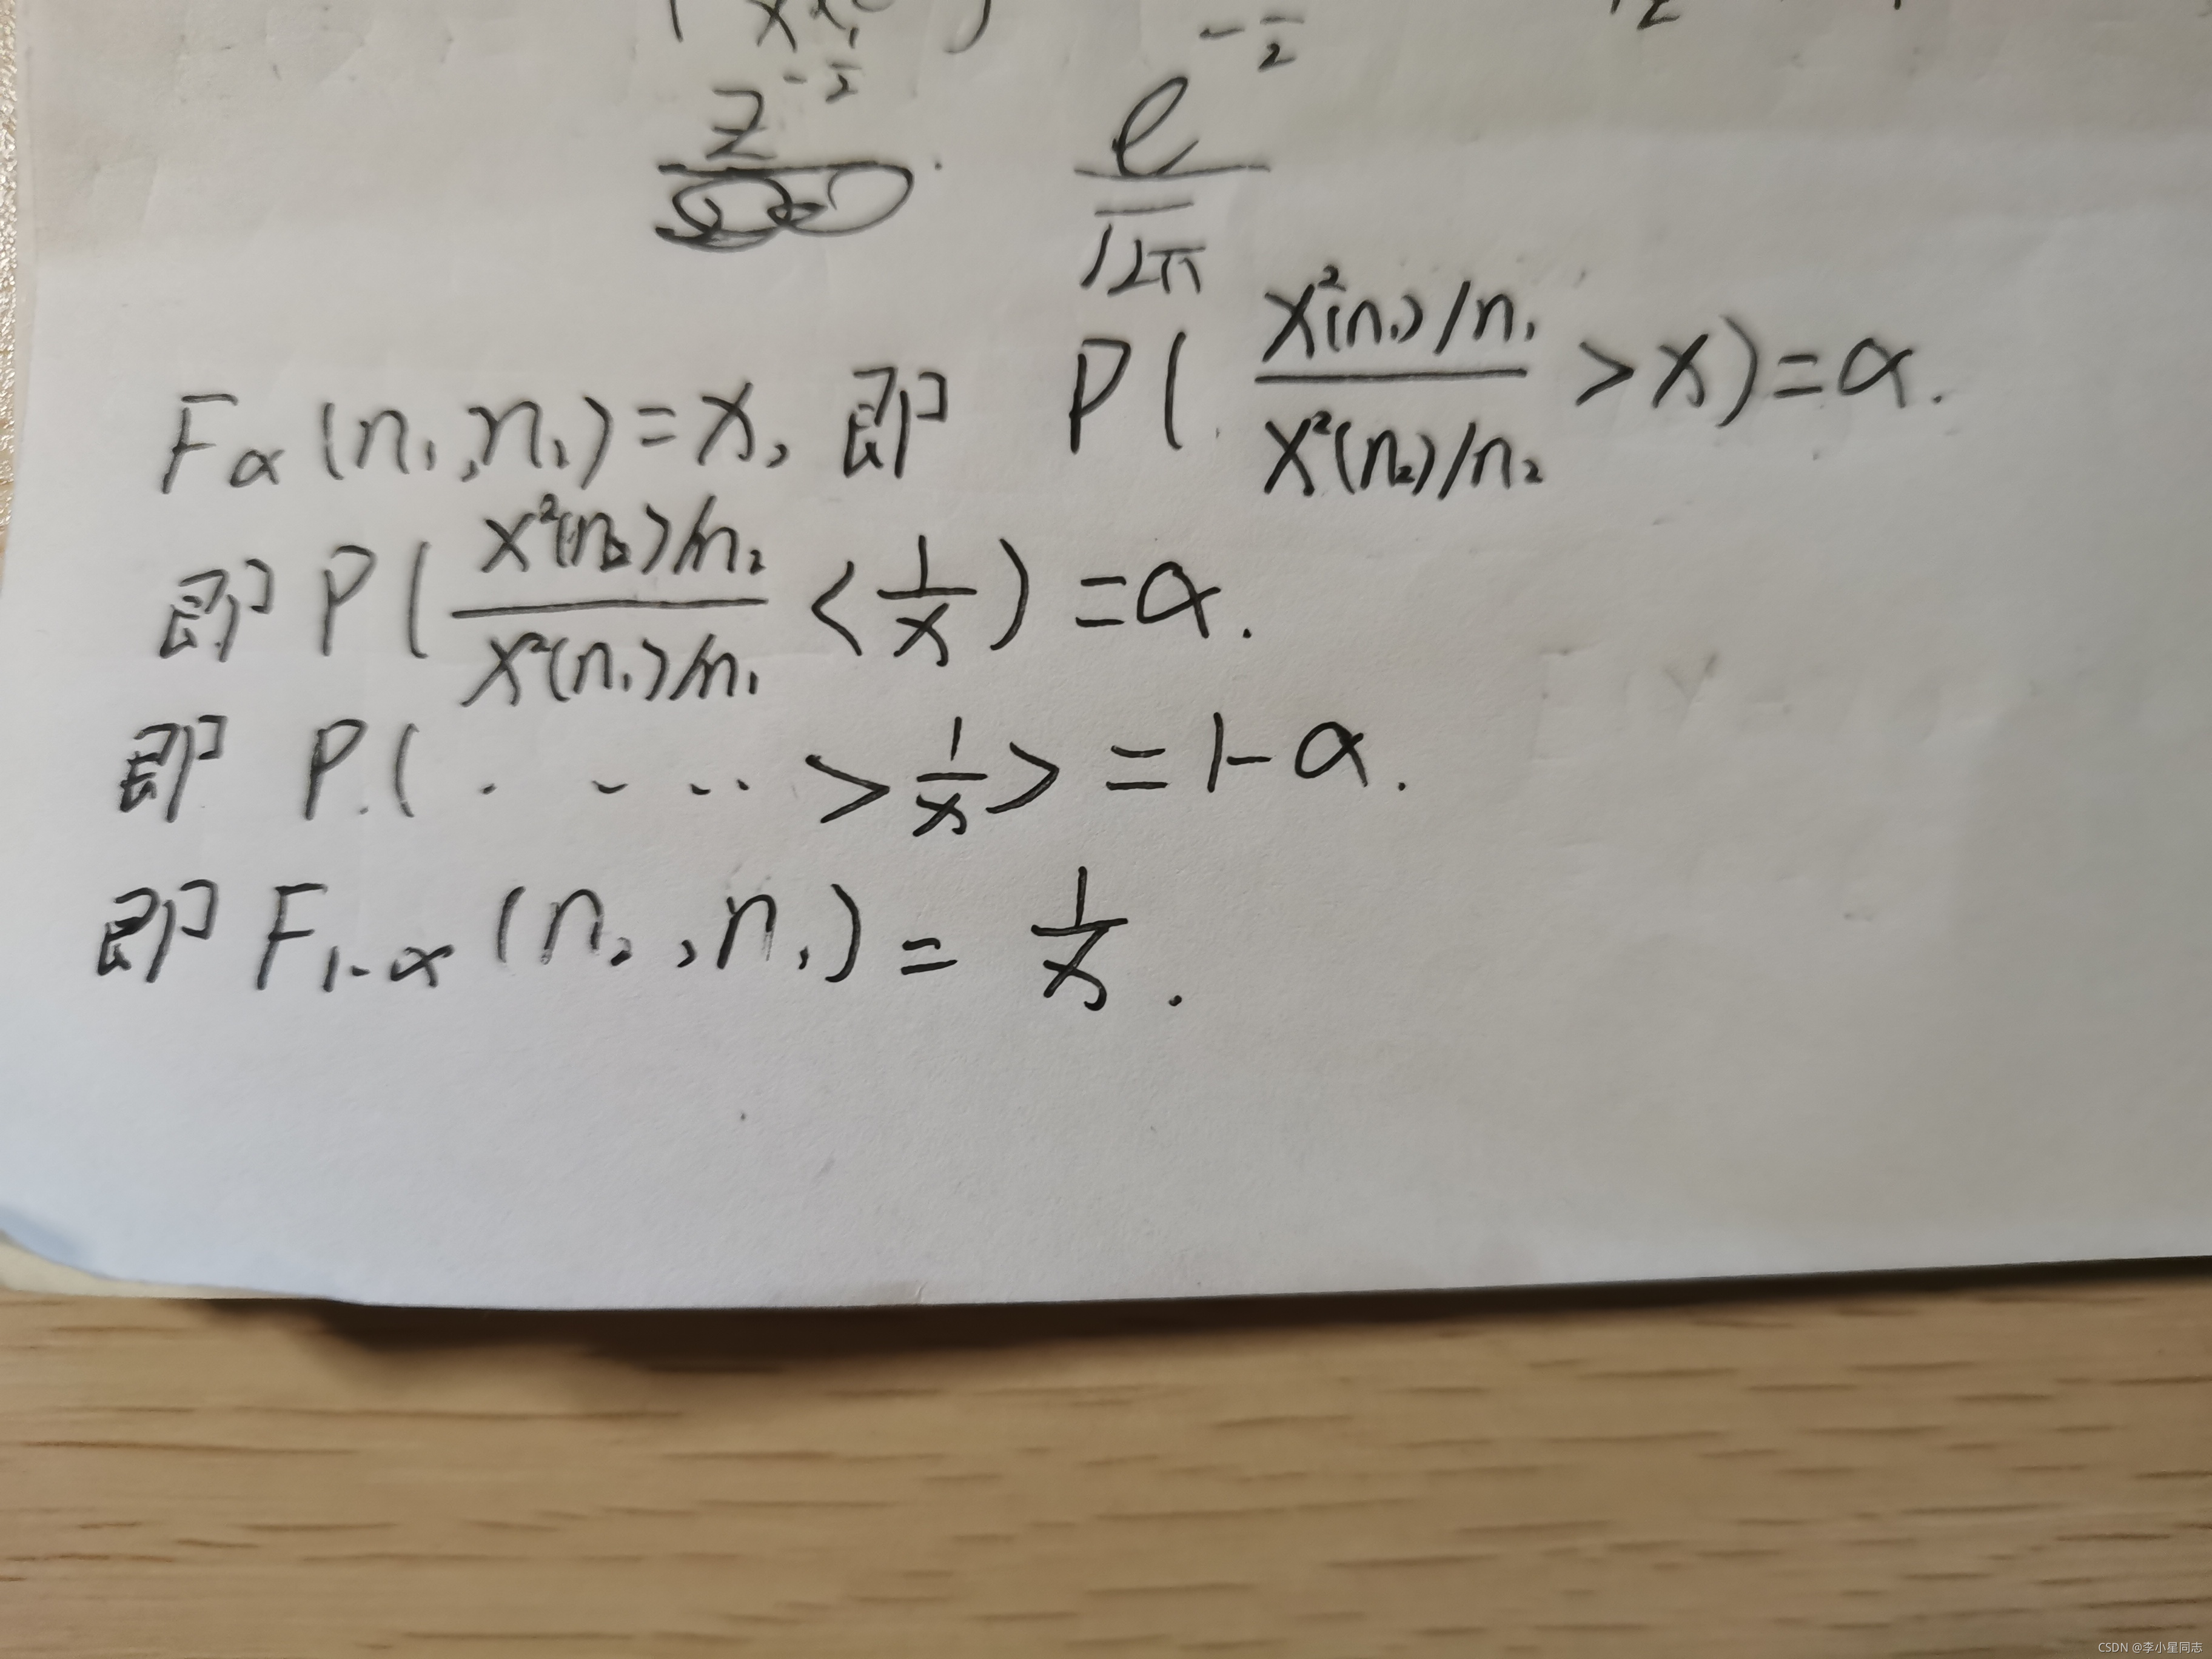 Z^{-\frac{}{2}} e^{-\frac{}{2}}
√2π
Fα(n₁,n₁)=x, 即 P(\frac{χ²(n₁)/n₁}{χ²(n₂)/n₂}>x)=α.
即 P(\frac{χ²(n₂)/n₂}{χ²(n₁)/n₁}<\frac{1}{x})=α.
即 P.(.....>\frac{1}{x}>=1-α.
即 F₁₋α(n₂,n₁)=\frac{1}{x}.
CSDN @李小星同志